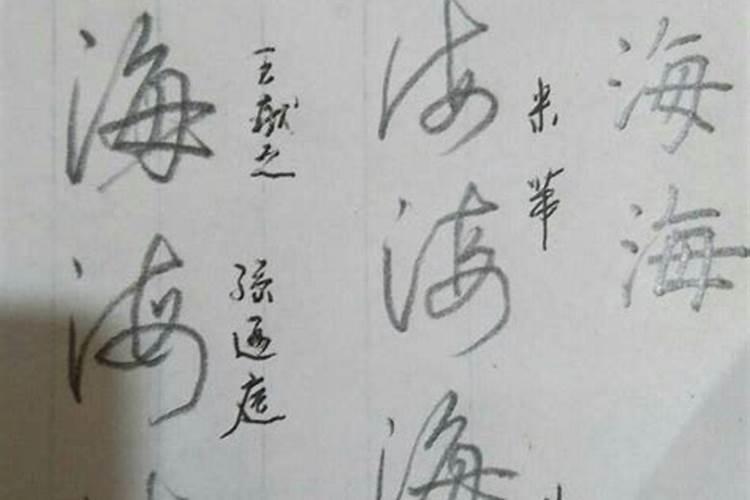 海
王献之
海
孙过庭
海
米芾
海
海
海
海